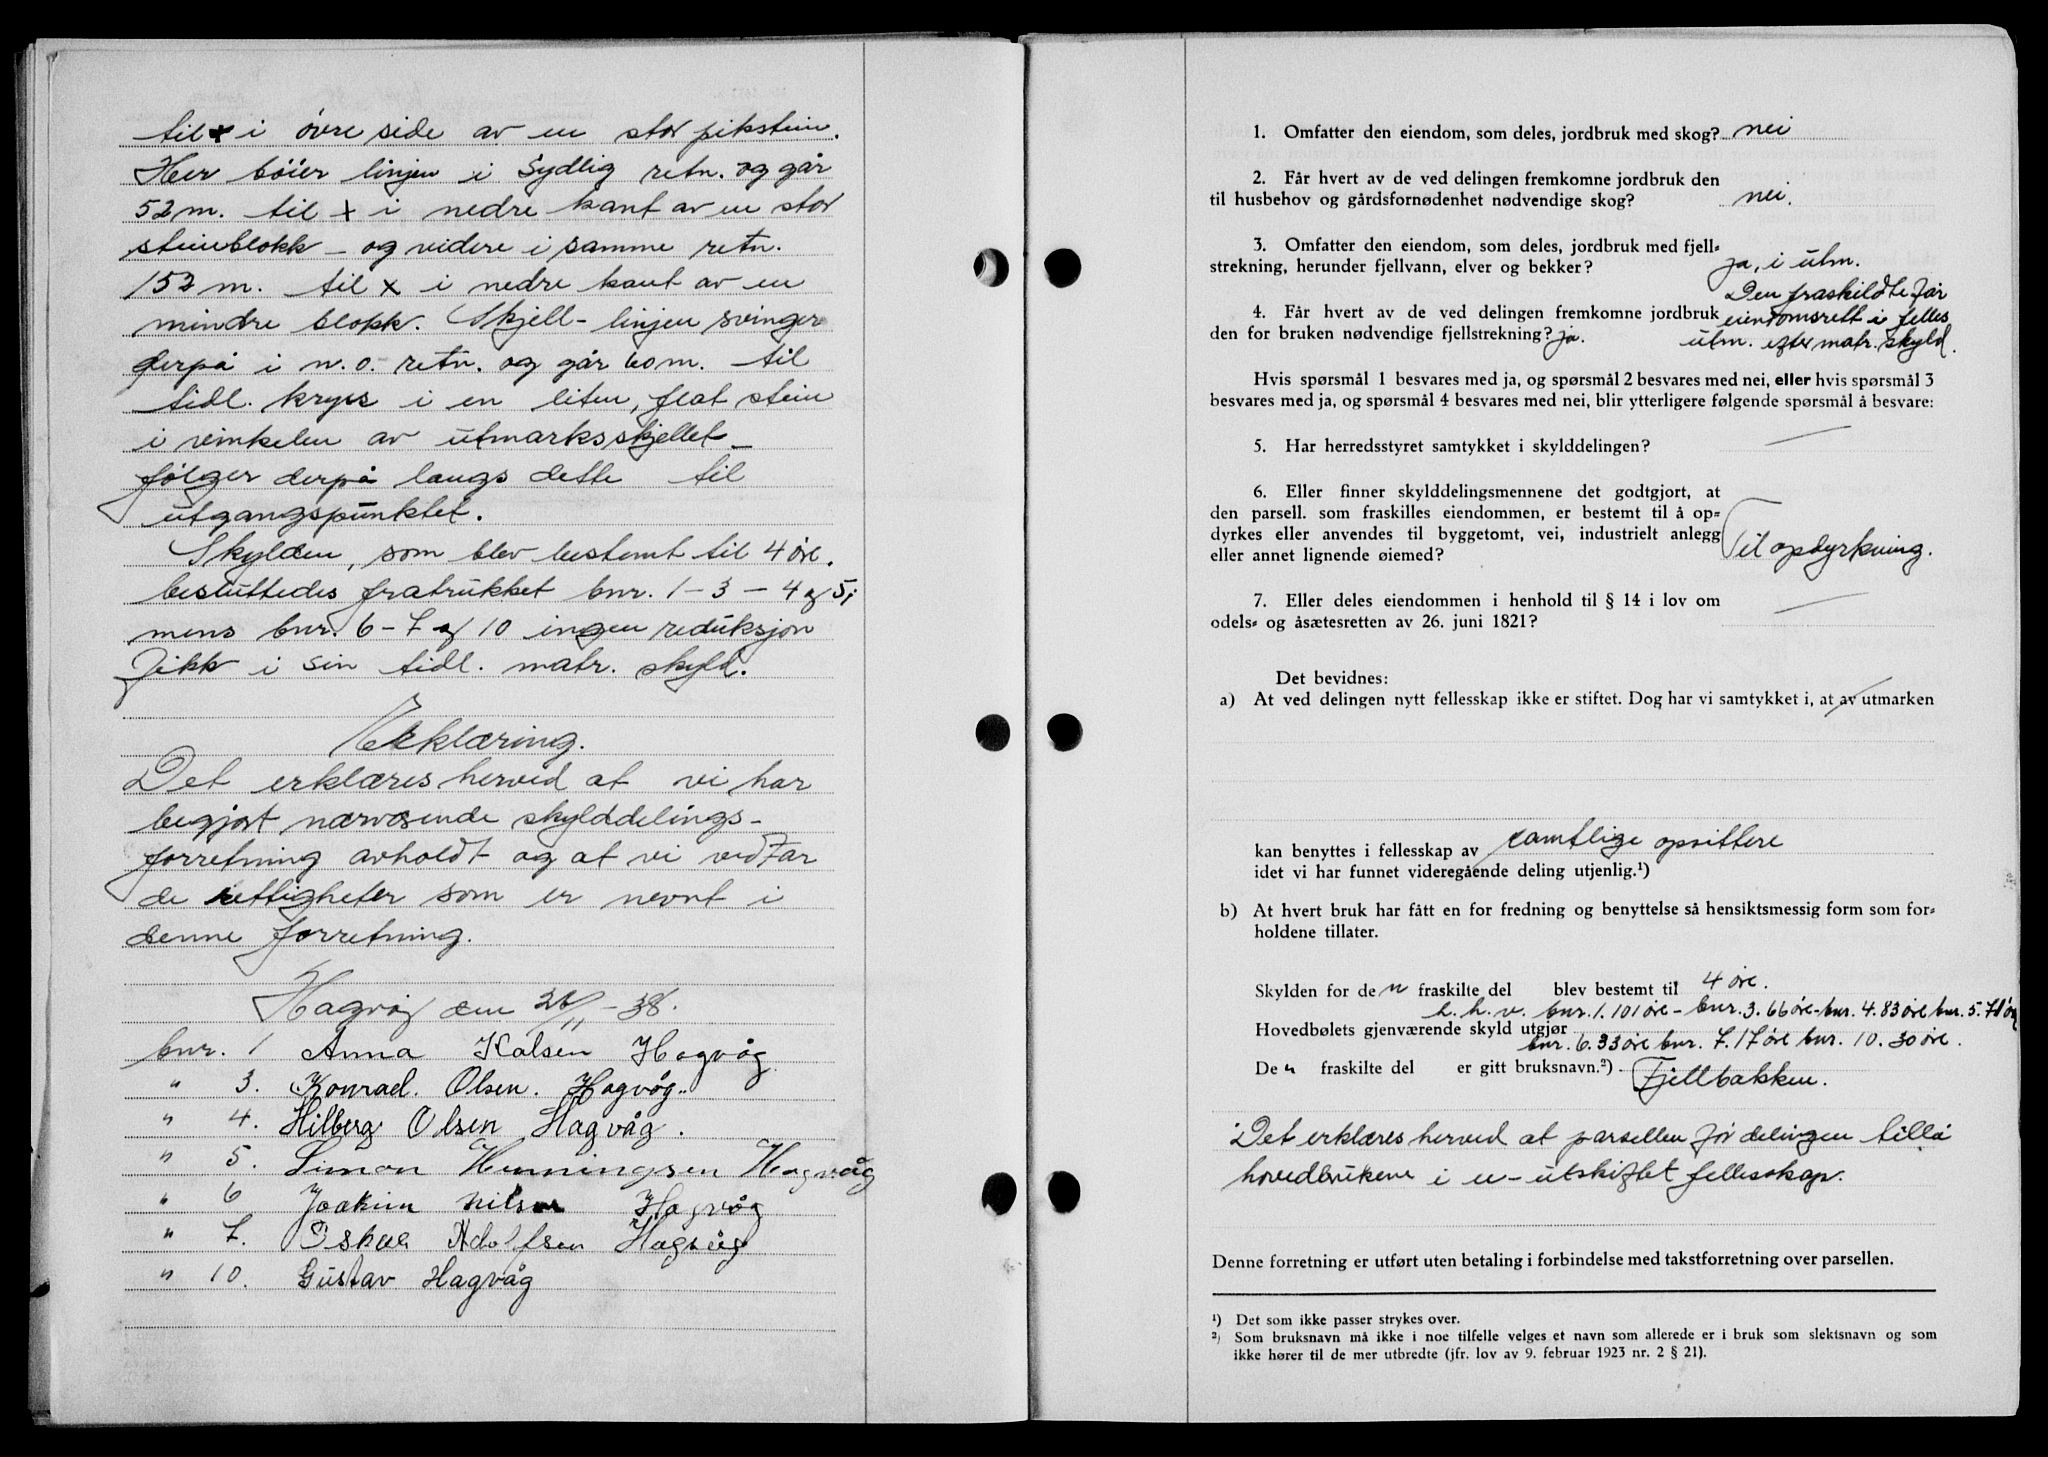 til x i övre side av en stor pikstein.
Her böier linjen i sydlig retn. og går
52 m. til x i nedre kant av en stor
steinblokk – og videre i samme retn.
152 m. til x i nedre kant av en
mindre blokk. Skjell-linjen svinger
derpå i n.o. retn. og går 60 m. til
tidl. kryss i en liten, flat stein
i vinkelen av utmarksskjellet –
følger derpå langs dette til
utgangspunktet.
Skylden, som blev bestemt til 4 öre.
besluttedes fratrukket bnr. 1 – 3 – 4 og 5;
mens bnr. 6 – 7 og 10 ingen reduksjon
fikk i sin tidl. matr. skyld.
Erklæring.
Det erklæres herved at vi har
begjært nærværende skylddelings-
forretning avholdt og at vi vedtar
de rettigheter som er nevnt i
denne forretning.
Hagvåg den 26/11 – 38.
bnr. 1 Anna Kalsen Hagvåg
" 3. Konrad. Olsen. Hagvåg.
" 4. Hilberg Olsen Hagvåg.
" 5. Simon Henningsen Hagvåg
" 6 Joakim Nilsen Hagvåg
" 7. Oskar Adolfsen Hagvåg
" 10. Gustav Hagvåg
1. Omfatter den eiendom, som deles, jordbruk med skog? nei
2. Får hvert av de ved delingen fremkomne jordbruk den
til husbehov og gårdsfornødenhet nødvendige skog? nei.
3. Omfatter den eiendom, som deles, jordbruk med fjell-
strekning, herunder fjellvann, elver og bekker? ja, i utm.
Den fraskildte får
4. Får hvert av de ved delingen fremkomne jordbruk eiendomsrett i felles
den for bruken nødvendige fjellstrekning? ja. utm. efter matr. skyld.
Hvis spørsmål 1 besvares med ja, og spørsmål 2 besvares med nei, eller hvis spørsmål 3
besvares med ja, og spørsmål 4 besvares med nei, blir ytterligere følgende spørsmål å besvare:
5. Har herredsstyret samtykket i skylddelingen? —
6. Eller finner skylddelingsmennene det godtgjort, at
den parsell. som fraskilles eiendommen, er bestemt til å op-
dyrkes eller anvendes til byggetomt, vei, industrielt anlegg
eller annet lignende øiemed? Til opdyrkning.
7. Eller deles eiendommen i henhold til § 14 i lov om
odels- og åsætesretten av 26. juni 1821? —
Det bevidnes:
a) At ved delingen nytt fellesskap ikke er stiftet. Dog har vi samtykket i, at av utmarken
kan benyttes i fellesskap av samtlige opsittere
idet vi har funnet videregående deling utjenlig.¹)
b) At hvert bruk har fått en for fredning og benyttelse så hensiktsmessig form som for-
holdene tillater.
Skylden for den fraskilte del blev bestemt til 4 öre.
h. h. v. bnr. 1. 101 öre – bnr. 3. 66 öre – bnr. 4. 83 öre bnr. 5. 71 öre
Hovedbølets gjenværende skyld utgjør bnr. 6. 33 öre bnr. 7. 17 öre bnr. 10. 30 öre.
Den fraskilte del er gitt bruksnavn.²) Fjellbakken.
Det erklæres herved at parsellen før delingen tillå
hovedbrukene i u-utskiftet fellesskap.
Denne forretning er utført uten betaling i forbindelse med takstforretning over parsellen.
¹) Det som ikke passer strykes over.
²) Som bruksnavn må ikke i noe tilfelle velges et navn som allerede er i bruk som slektsnavn og som
ikke hører til de mer utbredte (jfr. lov av 9. februar 1923 nr. 2 § 21).